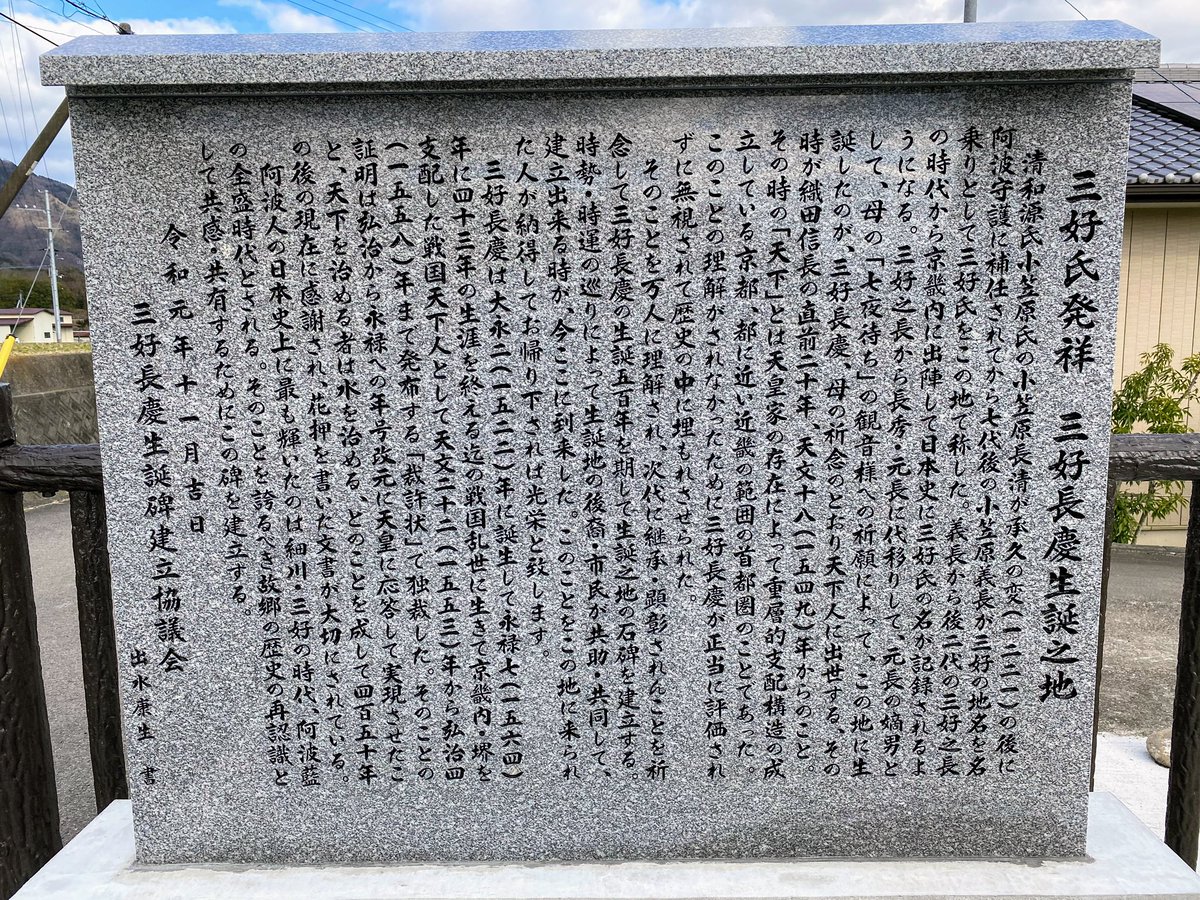 三好氏発祥　三好長慶生誕之地
清和源氏小笠原氏の小笠原長清が承久の変(一二二一)の後に
阿波守護に補任されてから七代後の小笠原義長が三好の地名を名
乗りとして三好氏をこの地で称した。義長から後二代の三好之長
の時代から京畿内に出陣して日本史に三好氏の名が記録されるよ
うになる。三好之長から長秀・元長に代移りして、元長の嫡男と
して、母の「七夜待ち」の観音様への祈願によって、この地に生
誕したのが、三好長慶、母の祈念のとおり天下人に出世する、その
時が織田信長の直前二十年、天文十八(一五四九)年からのこと。
その時の「天下」とは天皇家の存在によって重層的支配構造の成
立している京都、都に近い近畿の範囲の首都圏のことであった。
このことの理解がされなかったために三好長慶が正当に評価され
ずに無視されて歴史の中に埋もれさせられた。
そのことを万人に理解され、次代に継承・顕彰されんことを祈
念して三好長慶の生誕五百年を期して生誕之地の石碑を建立する。
時勢・時運の巡りによって生誕地の後裔・市民が共助・共同して、
建立出来る時が、今ここに到来した。このことをこの地に来られ
た人が納得してお帰り下されば光栄と致します。
三好長慶は大永二(一五二二)年に誕生して永禄七(一五六四)
年に四十三年の生涯を終える迄の戦国乱世に生きて京畿内・堺を
支配した戦国天下人として天文二十二(一五五三)年から弘治四
(一五五八)年まで発布する「裁許状」で独裁した。そのことの
証明は弘治から永禄への年号改元に天皇に応答して実現させたこ
と、天下を治める者は水を治める、とのことを成して四百五十年
の後の現在に感謝され、花押を書いた文書が大切にされている。
阿波人の日本史上に最も輝いたのは細川・三好の時代、阿波藍
の全盛時代とされる。そのことを誇るべき故郷の歴史の再認識と
して共感・共有するためにこの碑を建立する。
令和元年十一月吉日
三好長慶生誕碑建立協議会
出水康生　書